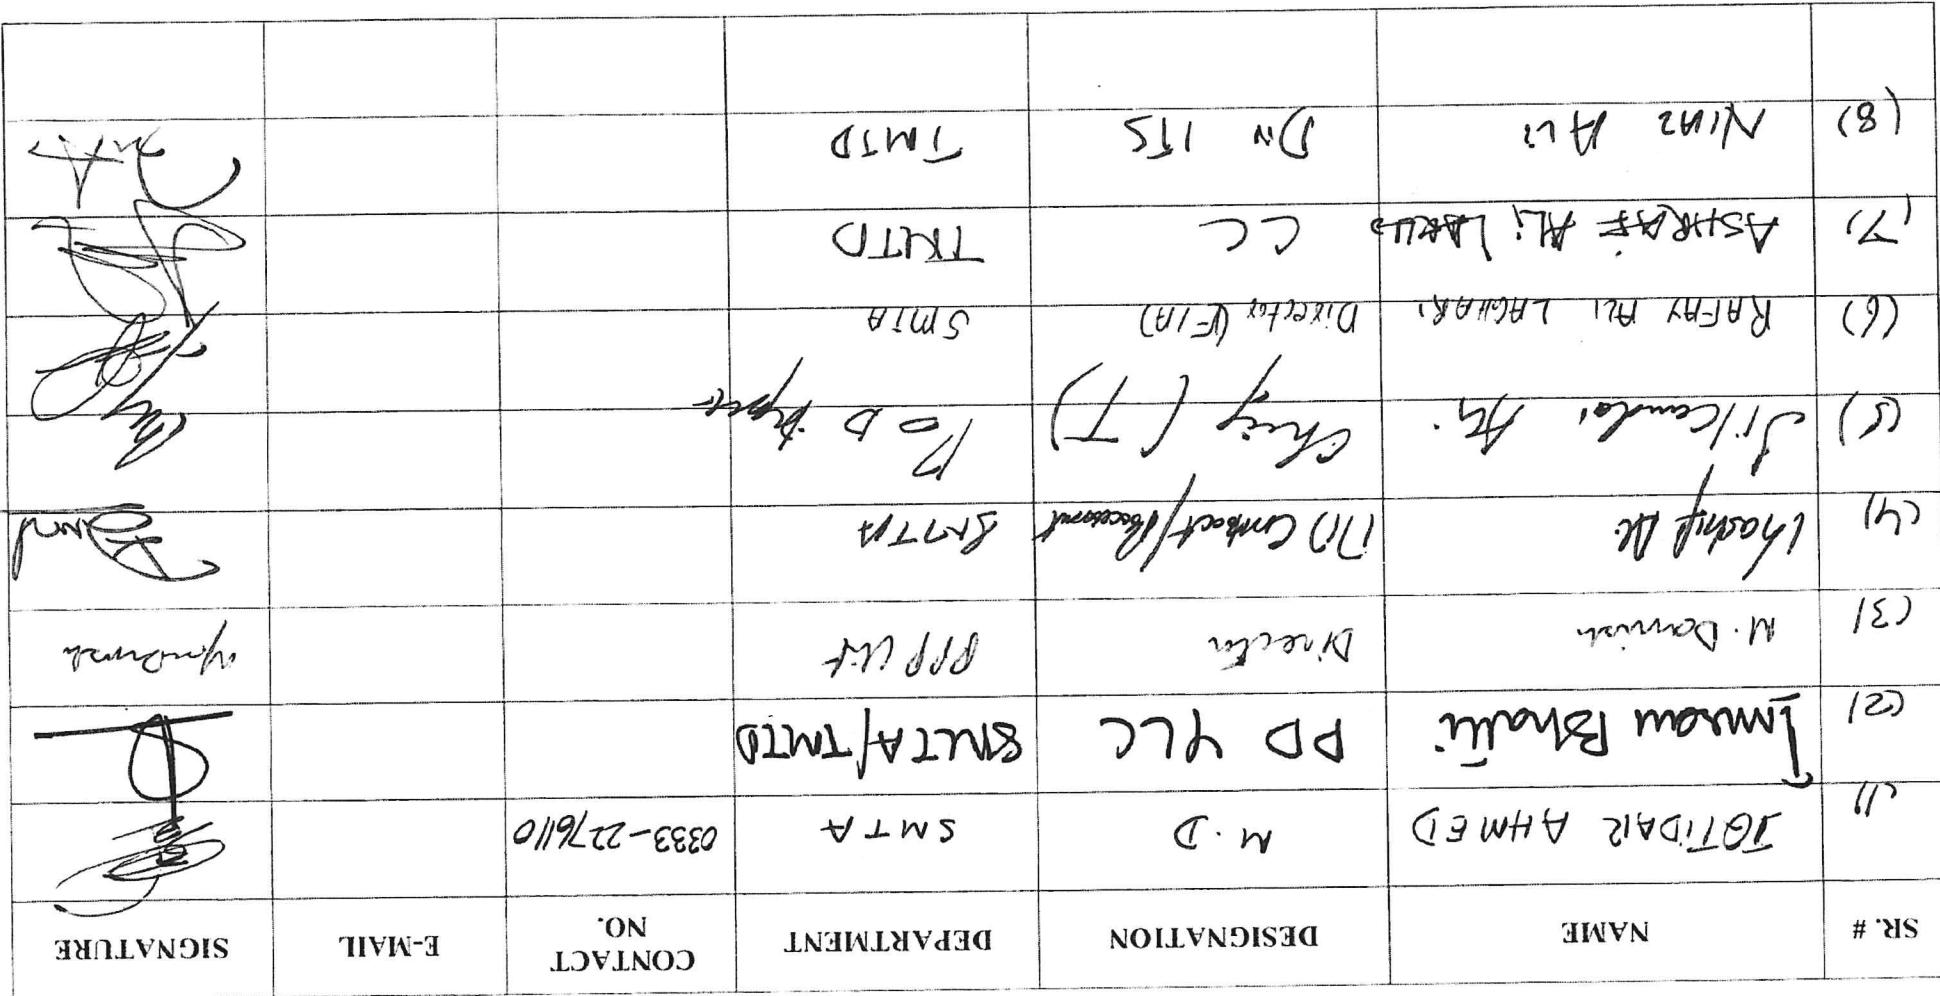 SR. # NAME DESIGNATION DEPARTMENT CONTACT NO. E-MAIL SIGNATURE
(1) IQTIDAR AHMED M.D SMTA 0333-2276110
(2) Imran Bhatti PD YLC SMTA/TMTD
(3) M. Danish Director PPP Unit
(4) Khashif Ali SMTA
(5) Ali Chief (T) P & D
(6) RAFAY ALI LAGHARI Director (F/A) SMTA
(7) ASHRAF ALI CC TMTD
(8) NIAZ ALI ITS TMTD